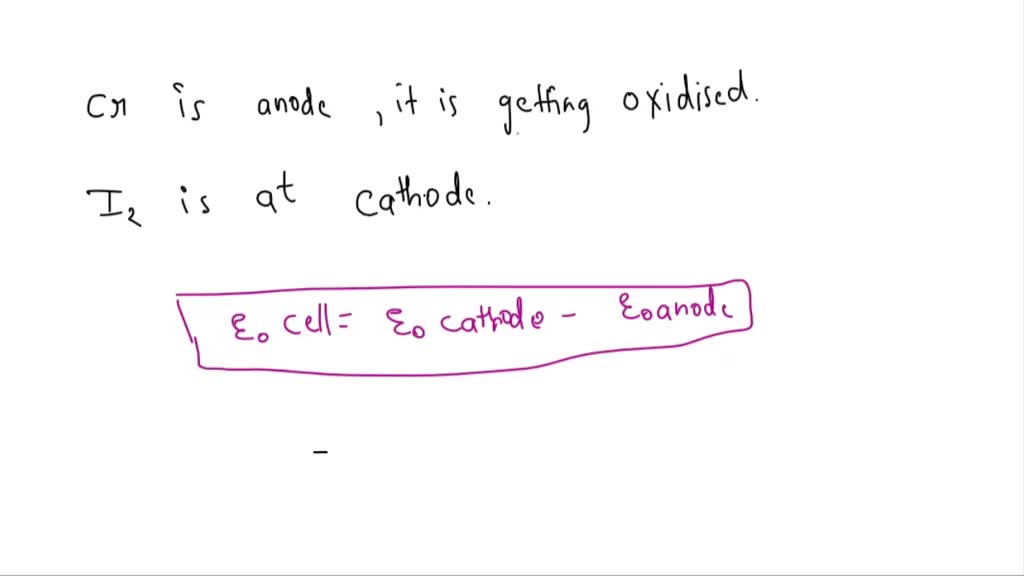 Cr is anode , it is getting oxidised.
I₂ is at cathode.
ε₀ cell = ε₀ cathode - ε₀ anode
-